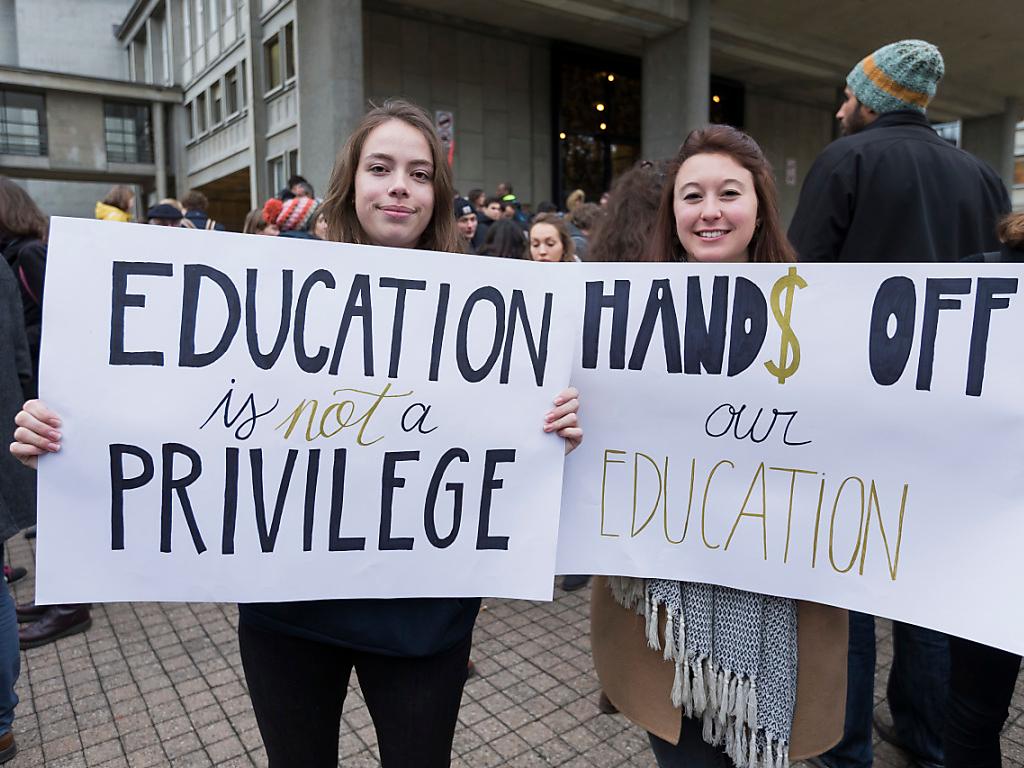 EDUCATION
is not a
PRIVILEGE
HAND$ OFF
our
EDUCATION